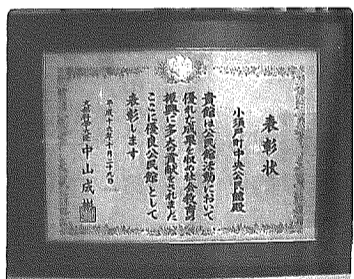 表彰状
小須戸町中央公民館殿
貴館は公民館活動において
優れた成果を収め社会教育の
振興に多大の貢献をされました
ここに優良公民館として
表彰します
平成十六年十月二十九日
文部科学大臣 中山成彬